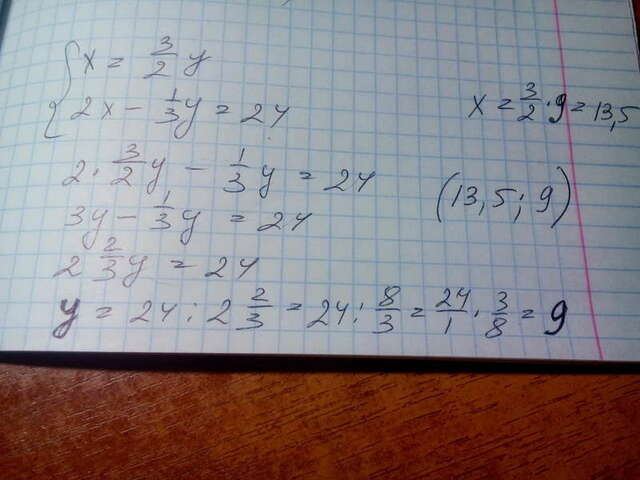 { x = 3/2 y
2x - 1/3 y = 24
x = 3/2 · 9 = 13,5
2 · 3/2 y - 1/3 y = 24
(13,5; 9)
3y - 1/3 y = 24
2 2/3 y = 24
y = 24 : 2 2/3 = 24 : 8/3 = 24/1 · 3/8 = 9